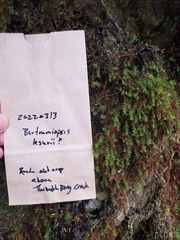 20220313
Bartramiopsis
lescurii?
Rock outcrop
above
Thimbleberry Creek